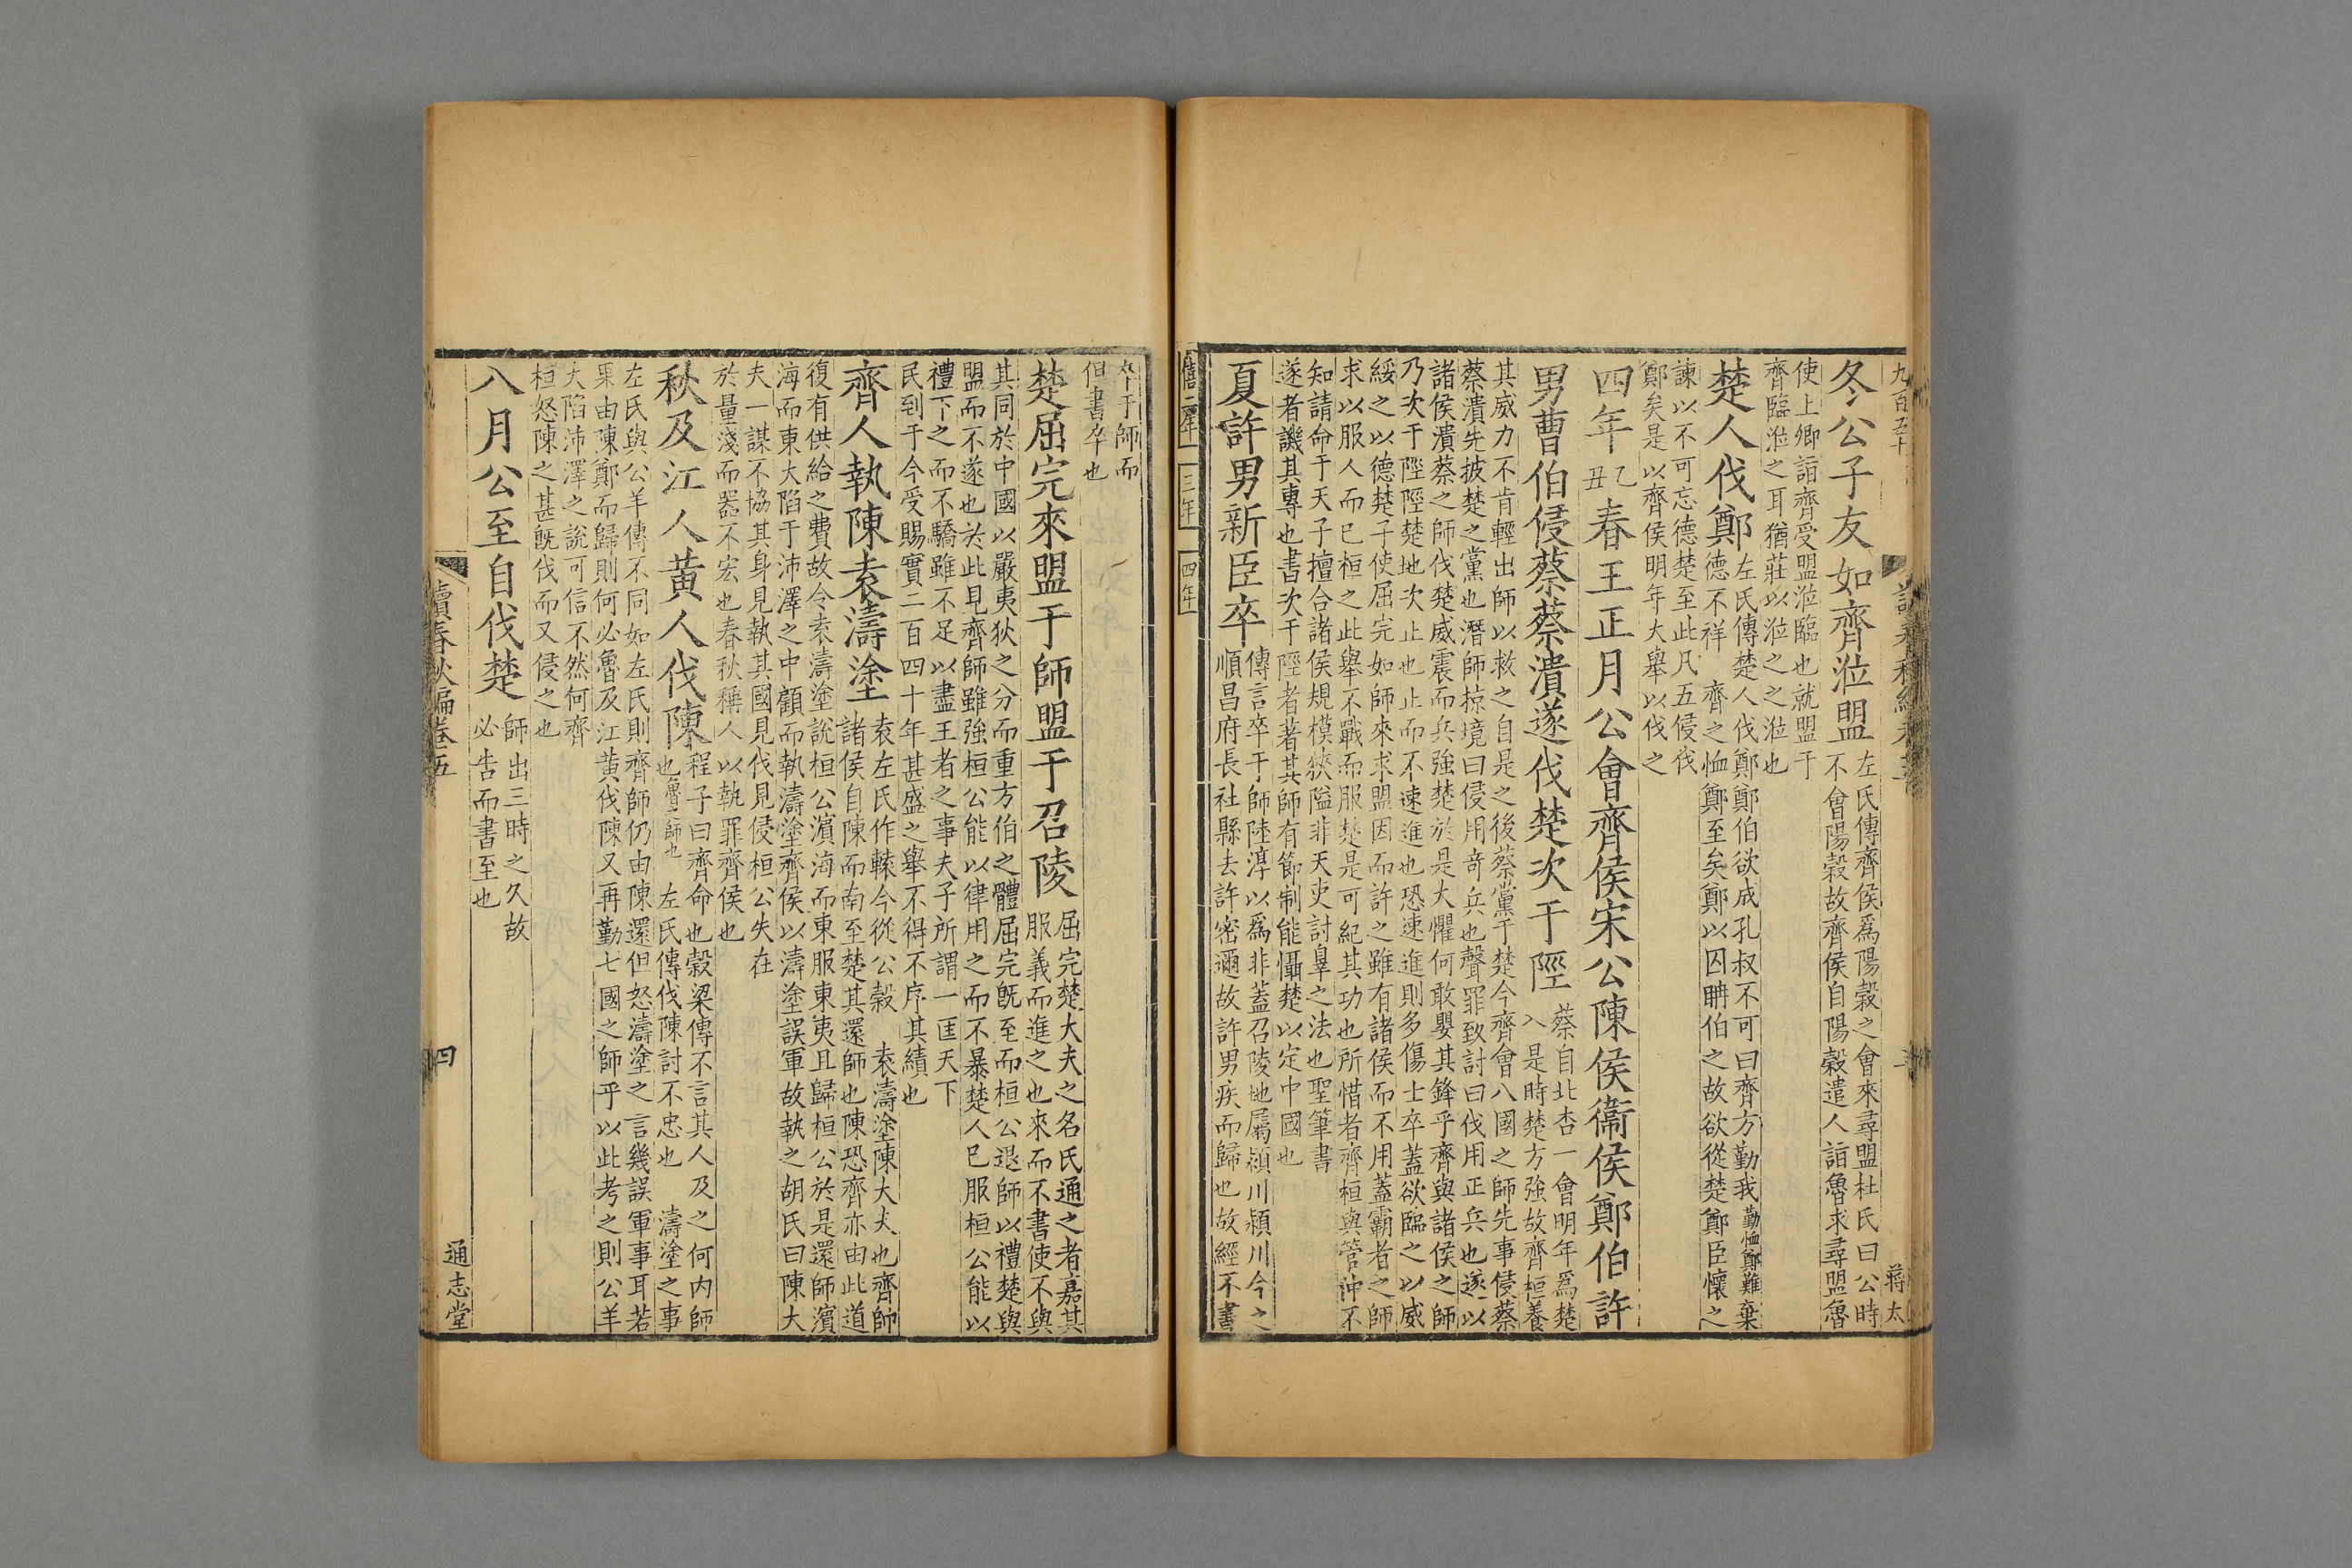 九百五十
蔣太
冬公子友如齊涖盟
左氏傳齊侯爲陽穀之會來尋盟杜氏曰公時
不會陽穀故齊侯自陽穀遣人詣魯求尋盟魯
使上卿詣齊受盟涖臨也就盟于
齊臨涖之耳猶莊以涖之之涖也
楚人伐鄭
左氏傳楚人伐鄭鄭伯欲成孔叔不可曰齊方勤我勤恤鄭難棄
德不祥 齊之恤鄭至矣鄭以囚聃伯之故欲從楚鄭臣懷之
諫以不可忘德楚至此凡五侵伐
鄭矣是以齊侯明年大舉以伐之
四年乙丑春王正月公會齊侯宋公陳侯衞侯鄭伯許
男曹伯侵蔡蔡潰遂伐楚次于陘
蔡自北杏一會明年爲楚
入是時楚方強故齊桓養
其威力不肯輕出師以救之自是之後蔡黨于楚今齊會八國之師先事侵蔡
蔡潰先披楚之黨也潛師掠境曰侵用奇兵也聲罪致討曰伐用正兵也遂以
諸侯潰蔡之師伐楚威震而兵強楚於是大懼何敢嬰其鋒乎齊與諸侯之師
乃次于陘陘楚地次止也止而不速進也恐速進則多傷士卒蓋欲臨之以威
綏之以德楚子使屈完如師來求盟因而許之雖有諸侯而不用蓋霸者之師
求以服人而已桓之此舉不戰而服楚是可紀其功也所惜者齊桓與管沖不
知請命于天子擅合諸侯規模狹隘非天吏討辠之法也聖筆書
遂者譏其專也書次于陘者著其師有節制能懾楚以定中國也
夏許男新臣卒
傳言卒于師陸淳以爲非蓋召陵地屬潁川潁川今之
順昌府長社縣去許密邇故許男疾而歸也故經不書
僖二年 三年 四年
卒于師而
但書卒也
楚屈完來盟于師盟于召陵
屈完楚大夫之名氏通之者嘉其
服義而進之也來而不書使不與
其同於中國以嚴夷狄之分而重方伯之體屈完旣至而桓公退師以禮楚與
盟而不遂也於此見齊師雖強桓公能以律用之而不暴楚人已服桓公能以
禮下之而不驕雖不足以盡王者之事夫子所謂一匡天下
民到于今受賜實二百四十年甚盛之舉不得不序其績也
齊人執陳袁濤塗
袁左氏作轅今從公穀 袁濤塗陳大夫也齊師
諸侯自陳而南至楚其還師也陳恐齊亦由此道
復有供給之費故令袁濤塗說桓公濱海而東服東夷且歸桓公於是還師濱
海而東大陷于沛澤之中顧而執濤塗齊侯以濤塗誤軍故執之胡氏曰陳大
夫一謀不協其身見執其國見伐見侵桓公失在
於量淺而器不宏也春秋稱人以執罪齊侯也
秋及江人黃人伐陳
程子曰齊命也穀梁傳不言其人及之何內師
也魯師也 左氏傳伐陳討不忠也 濤塗之事
左氏與公羊傳不同如左氏則齊師仍由陳還但怒濤塗之言幾誤軍事耳若
果由陳鄭而歸則何必魯及江黃伐陳又再勤七國之師乎以此考之則公羊
大陷沛澤之說可信不然何齊
桓怒陳之甚旣伐而又侵之也
八月公至自伐楚
師出三時之久故
必告而書至也
讀春秋編卷五
四
通志堂